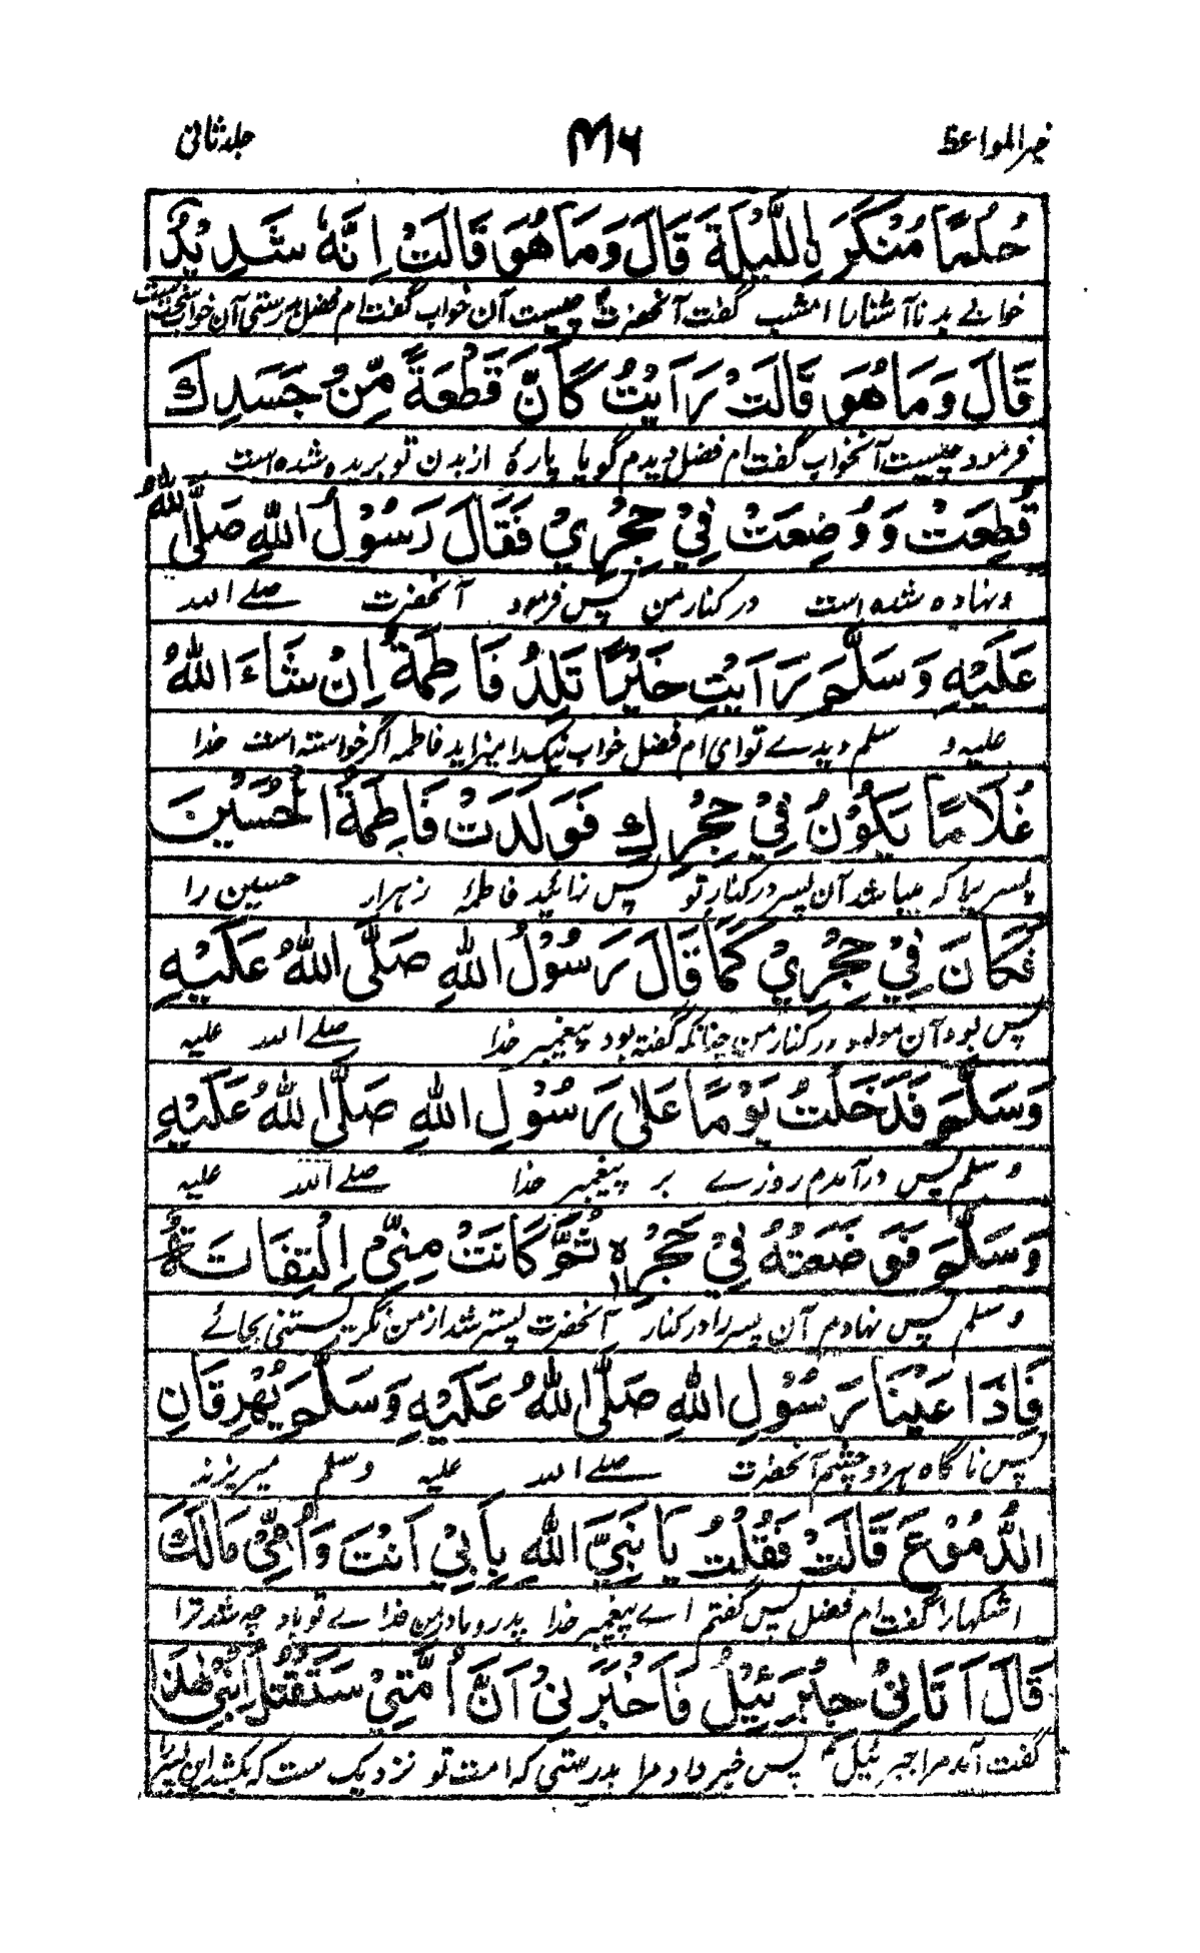 خیر المواعظ
۳۱۶
جلد ثانی
حُلُمًا مُنْكَرَ نِ اللَّيْلَةَ قَالَ وَمَا هُوَ قَالَتْ اِنَّهٗ شَدِيْدٌ
خوابے بد ناآشنا را امشب گفت آنحضرت چیست آن خواب گفت ام فضل بدرستی آن خواب سخت است
قَالَ وَمَا هُوَ قَالَتْ رَاَيْتُ كَاَنَّ قِطْعَةً مِّنْ جَسَدِكَ
فرمود چیست آنخواب گفت ام فضل دیدم گویا پارۂ از بدن تو بریده شده است
قُطِعَتْ وَوُضِعَتْ فِيْ حِجْرِيْ فَقَالَ رَسُوْلُ اللّٰهِ صَلَّى اللّٰهُ
ونهاده شده است در کنار من پس فرمود آنحضرت صلے الله
عَلَيْهِ وَسَلَّمَ رَاَيْتِ خَيْرًا تَلِدُ فَاطِمَةُ اِنْ شَاءَ اللّٰهُ
علیه و سلم دیدے تو ای ام فضل خواب نیک را میزاید فاطمه اگر خواسته است خدا
غُلَامًا يَكُوْنُ فِيْ حِجْرِكِ فَوَلَدَتْ فَاطِمَةُ الْحُسَيْنَ
پسریرا که میباشد آن پسر در کنار تو پس زائید فاطمۂ زهرا حسین را
فَكَانَ فِيْ حِجْرِيْ كَمَا قَالَ رَسُوْلُ اللّٰهِ صَلَّى اللّٰهُ عَلَيْهِ
پس بود آن مولود در کنار من چنانکه گفته بود پیغمبر خدا صلے الله علیه
وَسَلَّمَ فَدَخَلْتُ يَوْمًا عَلٰى رَسُوْلِ اللّٰهِ صَلَّى اللّٰهُ عَلَيْهِ
و سلم پس درآمدم روزے بر پیغمبر خدا صلے الله علیه
وَسَلَّمَ فَوَضَعْتُهٗ فِيْ حِجْرِهٖ ثُمَّ كَانَتْ مِنِّيْ اِلْتِفَاتَةٌ
و سلم پس نهادم آن پسر را در کنار آنحضرت پستر شد از من نگریستنی بجائے
فَاِذَا عَيْنَا رَسُوْلِ اللّٰهِ صَلَّى اللّٰهُ عَلَيْهِ وَسَلَّمَ يُهْرِقَانِ
پس ناگاه هر دو چشم آنحضرت صلے الله علیه وسلم میریزند
الدُّمُوْعَ قَالَتْ فَقُلْتُ يَا نَبِيَّ اللّٰهِ بِاَبِيْ اَنْتَ وَاُمِّيْ مَالَكَ
اشکها را گفت ام فضل پس گفتم اے پیغمبر خدا پدر و مادر من فداے تو باد چه شد ترا
قَالَ اَتَانِيْ جِبْرَئِيْلُ فَاَخْبَرَنِيْ اَنَّ اُمَّتِيْ سَتَقْتُلُ ابْنِيْ هٰذَا
گفت آمد مرا جبرئیل پس خبر داد مرا بدرستی که امت تو نزدیک ست که بکشد این پسر را